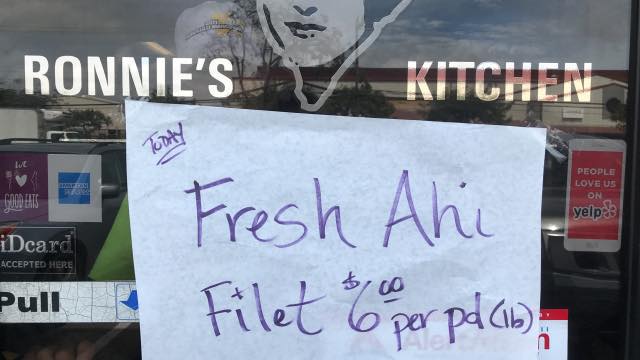 RONNIE'S KITCHEN
TODAY
Fresh Ahi
Filet $6.00 per pd (lb)
WE
GOOD EATS
AMERICAN EXPRESS
iDcard
ACCEPTED HERE
Pull
PEOPLE
LOVE US
ON
yelp